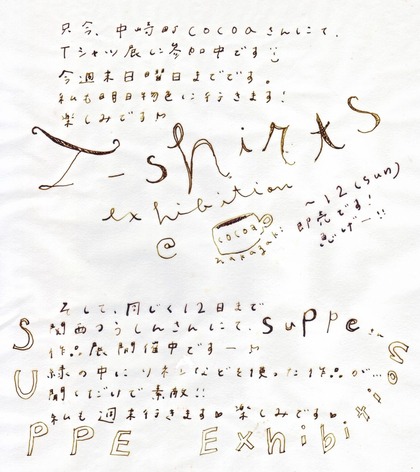 只今、中崎町cocoaさんにて、
Tシャツ展に参加中です
今週末日曜日までです。
私も明日物色に行きます!
楽しみです♪
T-shirts
exhibition
@
cocoa
nakazaki
〜12(sun)
即売です!
急げー!!
そして、同じく12日まで
関西つうしんさんにて、suppe..
作品展開催中ですー♪
緑の中にツネなどを使った作品が…
聞くだけで素敵!!
私も週末行きます♥楽しみです♥
SUPPE Exhibition